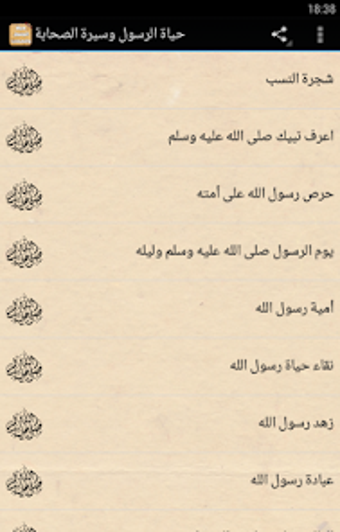 18:38
حياة الرسول وسيرة الصحابة
شجرة النسب
اعرف نبيك صلى الله عليه وسلم
حرص رسول الله على أمته
يوم الرسول صلى الله عليه وسلم وليله
أمية رسول الله
نقاء حياة رسول الله
زهد رسول الله
عبادة رسول الله